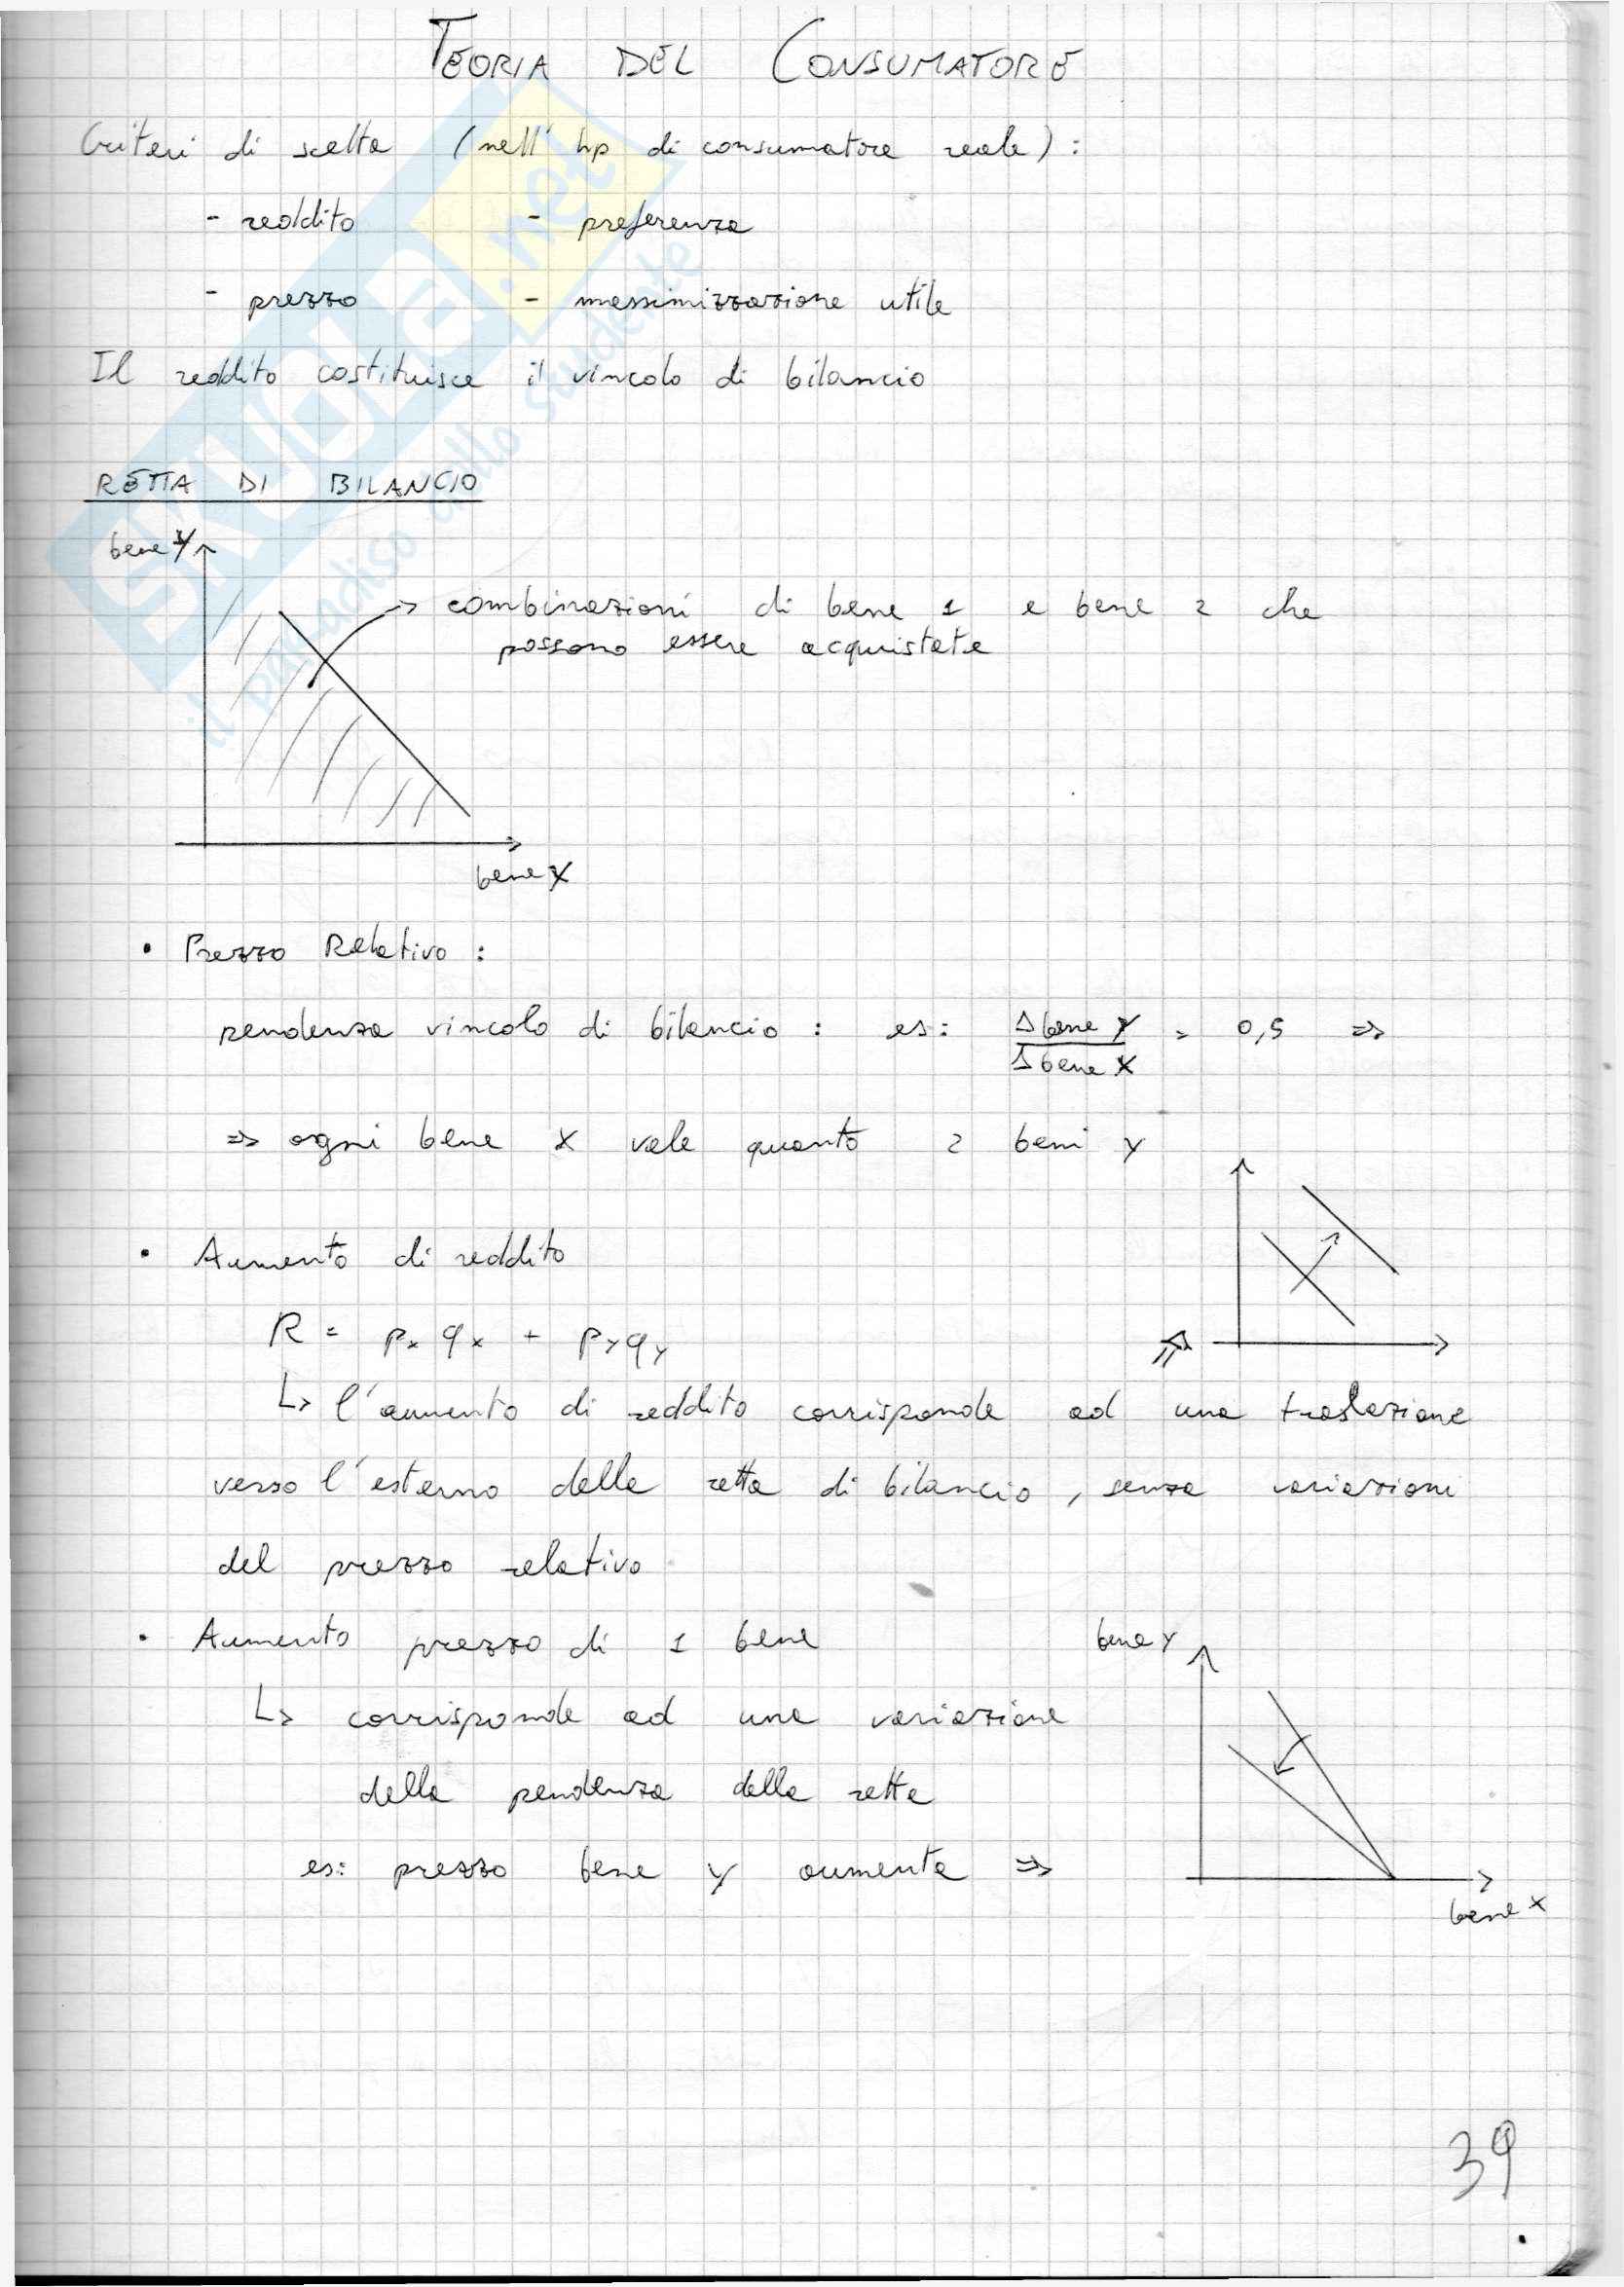 TEORIA DEL CONSUMATORE
Criteri di scelta (nell' hp di consumatore reale):
- reddito - preferenza
- prezzo - massimizzazione utile
Il reddito costituisce il vincolo di bilancio
RETTA DI BILANCIO
bene Y
combinazioni di bene 1 e bene 2 che
possono essere acquistate
bene X
• Prezzo Relativo:
pendenza vincolo di bilancio: es: Δbene Y / Δbene X = 0,5 =>
=> ogni bene X vale quanto 2 beni Y
• Aumento di reddito
R = px qx + py qy
↳ l'aumento di reddito corrisponde ad una traslazione
verso l'esterno della retta di bilancio, senza variazioni
del prezzo relativo
• Aumento prezzo di 1 bene
bene Y
↳ corrisponde ad una variazione
della pendenza della retta
es: prezzo bene y aumenta =>
bene X
39
SKUOLA.net
il paradiso dello studente